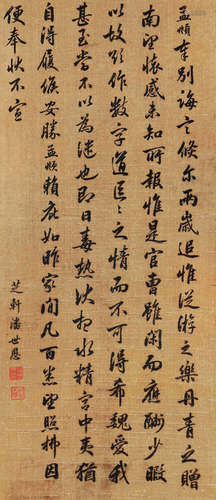 孟頫奉別誨言倏尔兩歲追惟從游之樂丹青之贈
南望懷感未知所報惟是官曹雖閑而應酬少暇
以故欲作數字道區々之情而不可得希魏愛我
甚至當不以為譴也即日毒熱伏想水精宮中夷猶
自得履候安勝孟頫賴庇如昨家間凡百悉望照拂因
便奉狀不宣
芝軒潘世恩